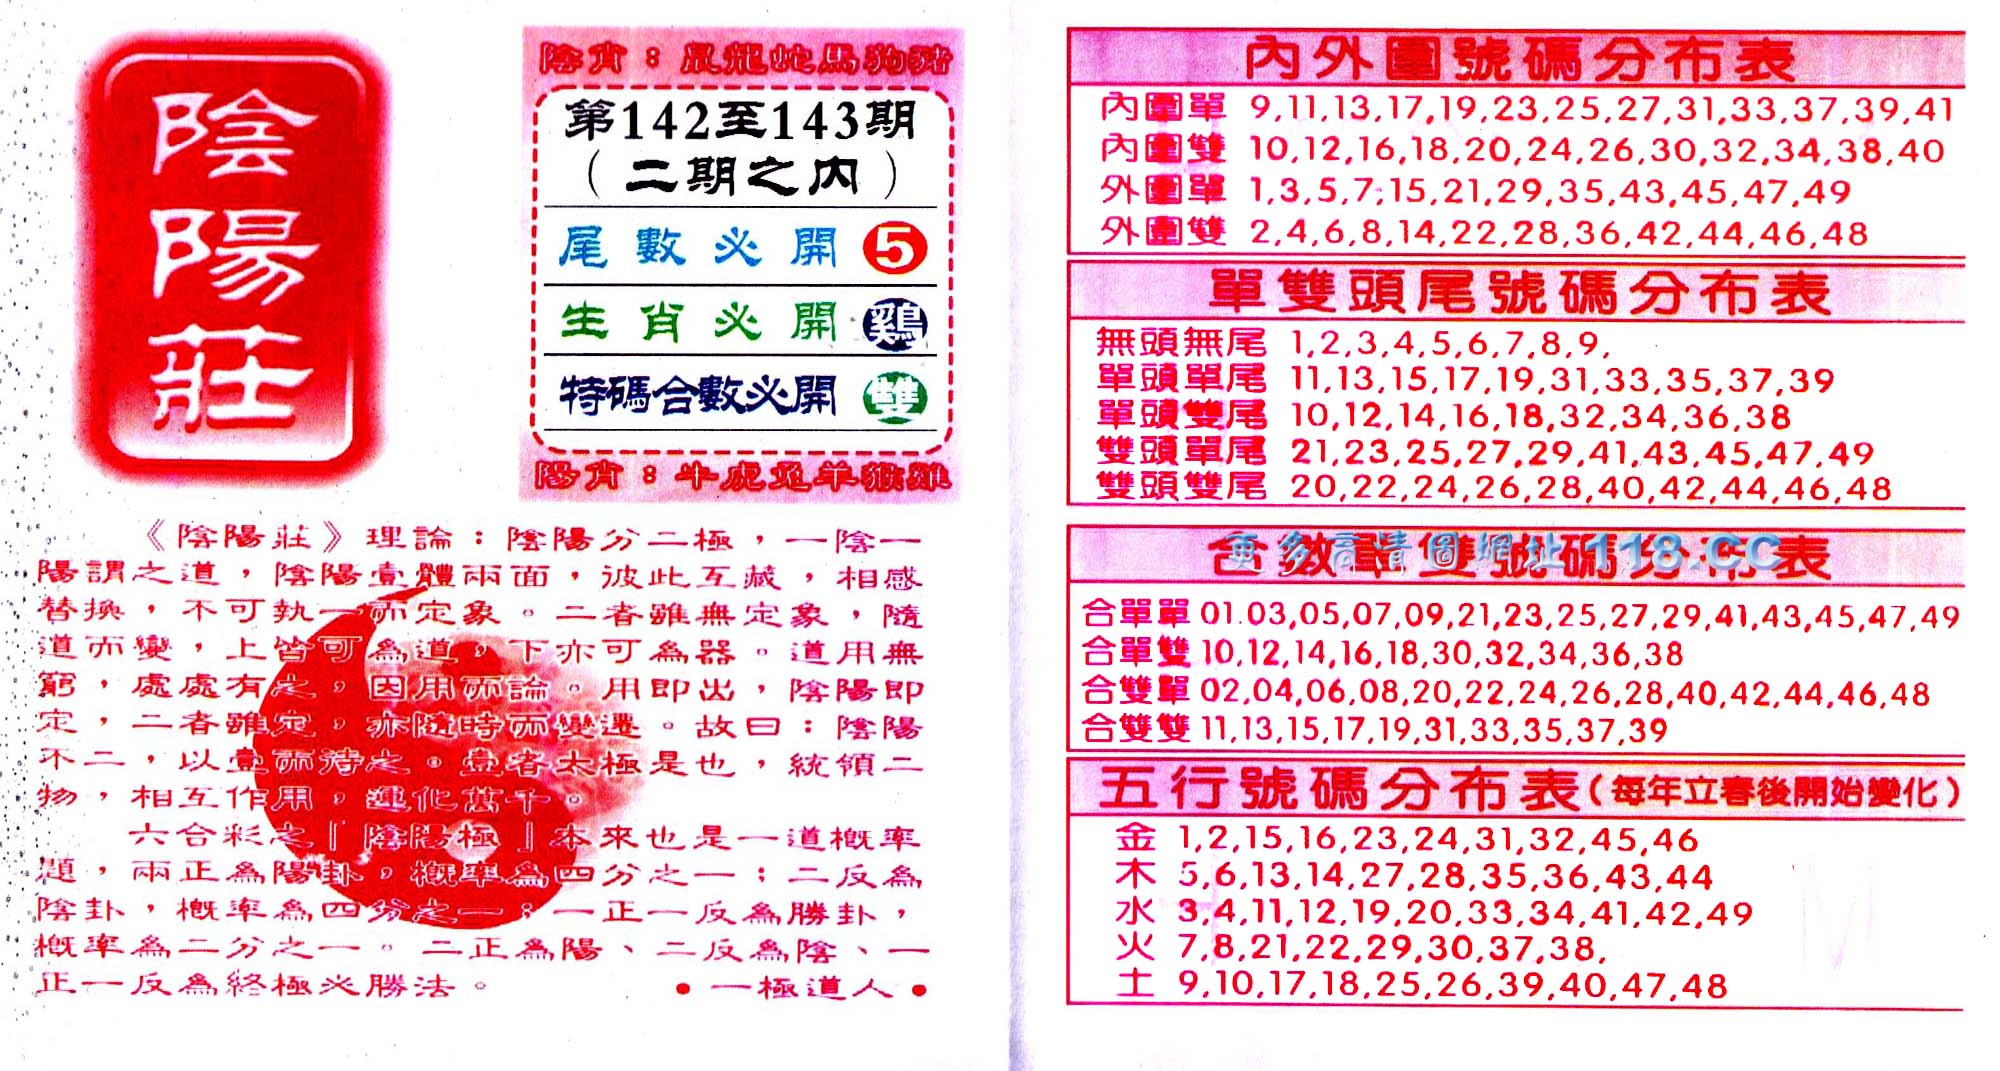 陰陽莊
陰肖：鼠龍蛇馬狗豬
第142至143期
（二期之內）
尾數必開 5
生肖必開 鷄
特碼合數必開 雙
陽肖：牛虎兔羊猴雞
《陰陽莊》理論：陰陽分二極，一陰一
陽謂之道，陰陽壹體兩面，彼此互藏，相感
替換，不可執一而定象。二者雖無定象，隨
道而變，上皆可為道，下亦可為器。道用無
窮，處處有之，因用而論。用即出，陰陽即
定，二者雖定，亦隨時而變遷。故曰：陰陽
不二，以壹而待之。壹者太極是也，統領二
物，相互作用，運化萬千。
六合彩之「陰陽極」本來也是一道概率
題，兩正為陽卦，概率為四分之一；二反為
陰卦，概率為四分之一；一正一反為勝卦，
概率為二分之一。二正為陽、二反為陰、一
正一反為終極必勝法。
●一極道人●
內外圍號碼分布表
內圍單 9,11,13,17,19,23,25,27,31,33,37,39,41
內圍雙 10,12,16,18,20,24,26,30,32,34,38,40
外圍單 1,3,5,7,15,21,29,35,43,45,47,49
外圍雙 2,4,6,8,14,22,28,36,42,44,46,48
單雙頭尾號碼分布表
無頭無尾 1,2,3,4,5,6,7,8,9,
單頭單尾 11,13,15,17,19,31,33,35,37,39
單頭雙尾 10,12,14,16,18,32,34,36,38
雙頭單尾 21,23,25,27,29,41,43,45,47,49
雙頭雙尾 20,22,24,26,28,40,42,44,46,48
合數單雙號碼分布表
更多高清圖網址118.CC
合單單 01.03,05,07,09,21,23,25,27,29,41,43,45,47,49
合單雙 10,12,14,16,18,30,32,34,36,38
合雙單 02,04,06,08,20,22,24,26,28,40,42,44,46,48
合雙雙 11,13,15,17,19,31,33,35,37,39
五行號碼分布表（每年立春後開始變化）
金 1,2,15,16,23,24,31,32,45,46
木 5,6,13,14,27,28,35,36,43,44
水 3,4,11,12,19,20,33,34,41,42,49
火 7,8,21,22,29,30,37,38,
土 9,10,17,18,25,26,39,40,47,48